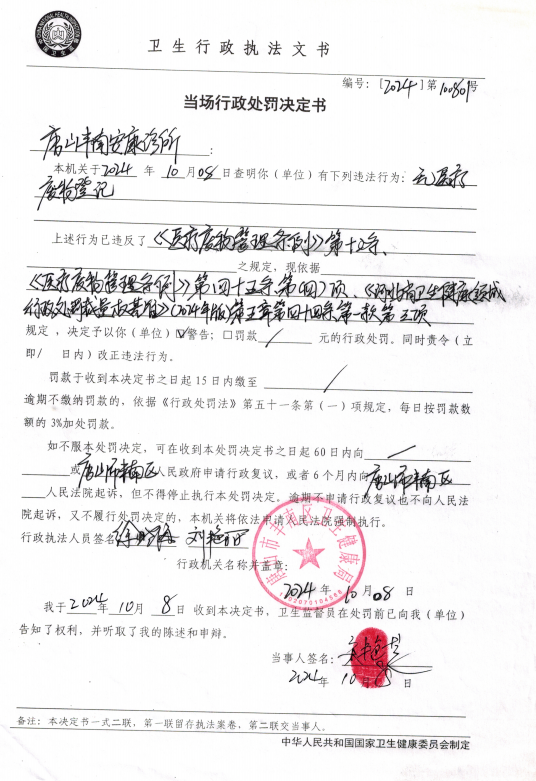 卫生行政执法文书
编号：[2024]第100801号
当场行政处罚决定书
唐山丰南安康诊所：
本机关于2024年10月08日查明你（单位）有下列违法行为：无医疗
废物登记
上述行为已违反了《医疗废物管理条例》第十二条、
之规定，现依据
《医疗废物管理条例》第四十五条第(四)项、《河北省卫生健康领域
行政处罚裁量权基准》(2024年版)第五章第四十四条第一款第三项
规定，决定予以你（单位）☑警告；□罚款 / 元的行政处罚。同时责令（立
即/ 日内）改正违法行为。
罚款于收到本决定书之日起15日内缴至 /
逾期不缴纳罚款的，依据《行政处罚法》第五十一条第（一）项规定，每日按罚款数
额的3%加处罚款。
如不服本处罚决定，可在收到本处罚决定书之日起60日内向 —
或唐山市丰南区人民政府申请行政复议，或者6个月内向唐山市丰南区
人民法院起诉，但不得停止执行本处罚决定。逾期不申请行政复议也不向人民法
院起诉，又不履行处罚决定的，本机关将依法申请人民法院强制执行。
行政执法人员签名： 刘艳丽
行政机关名称并盖章：
唐山市丰南区卫生健康局
2024年10月08日
我于2024年10月8日收到本决定书，卫生监督员在处罚前已向我（单位）
告知了权利，并听取了我的陈述和申辩。
当事人签名：
2024年10月08日
备注：本决定书一式二联，第一联留存执法案卷，第二联交当事人。
中华人民共和国国家卫生健康委员会制定